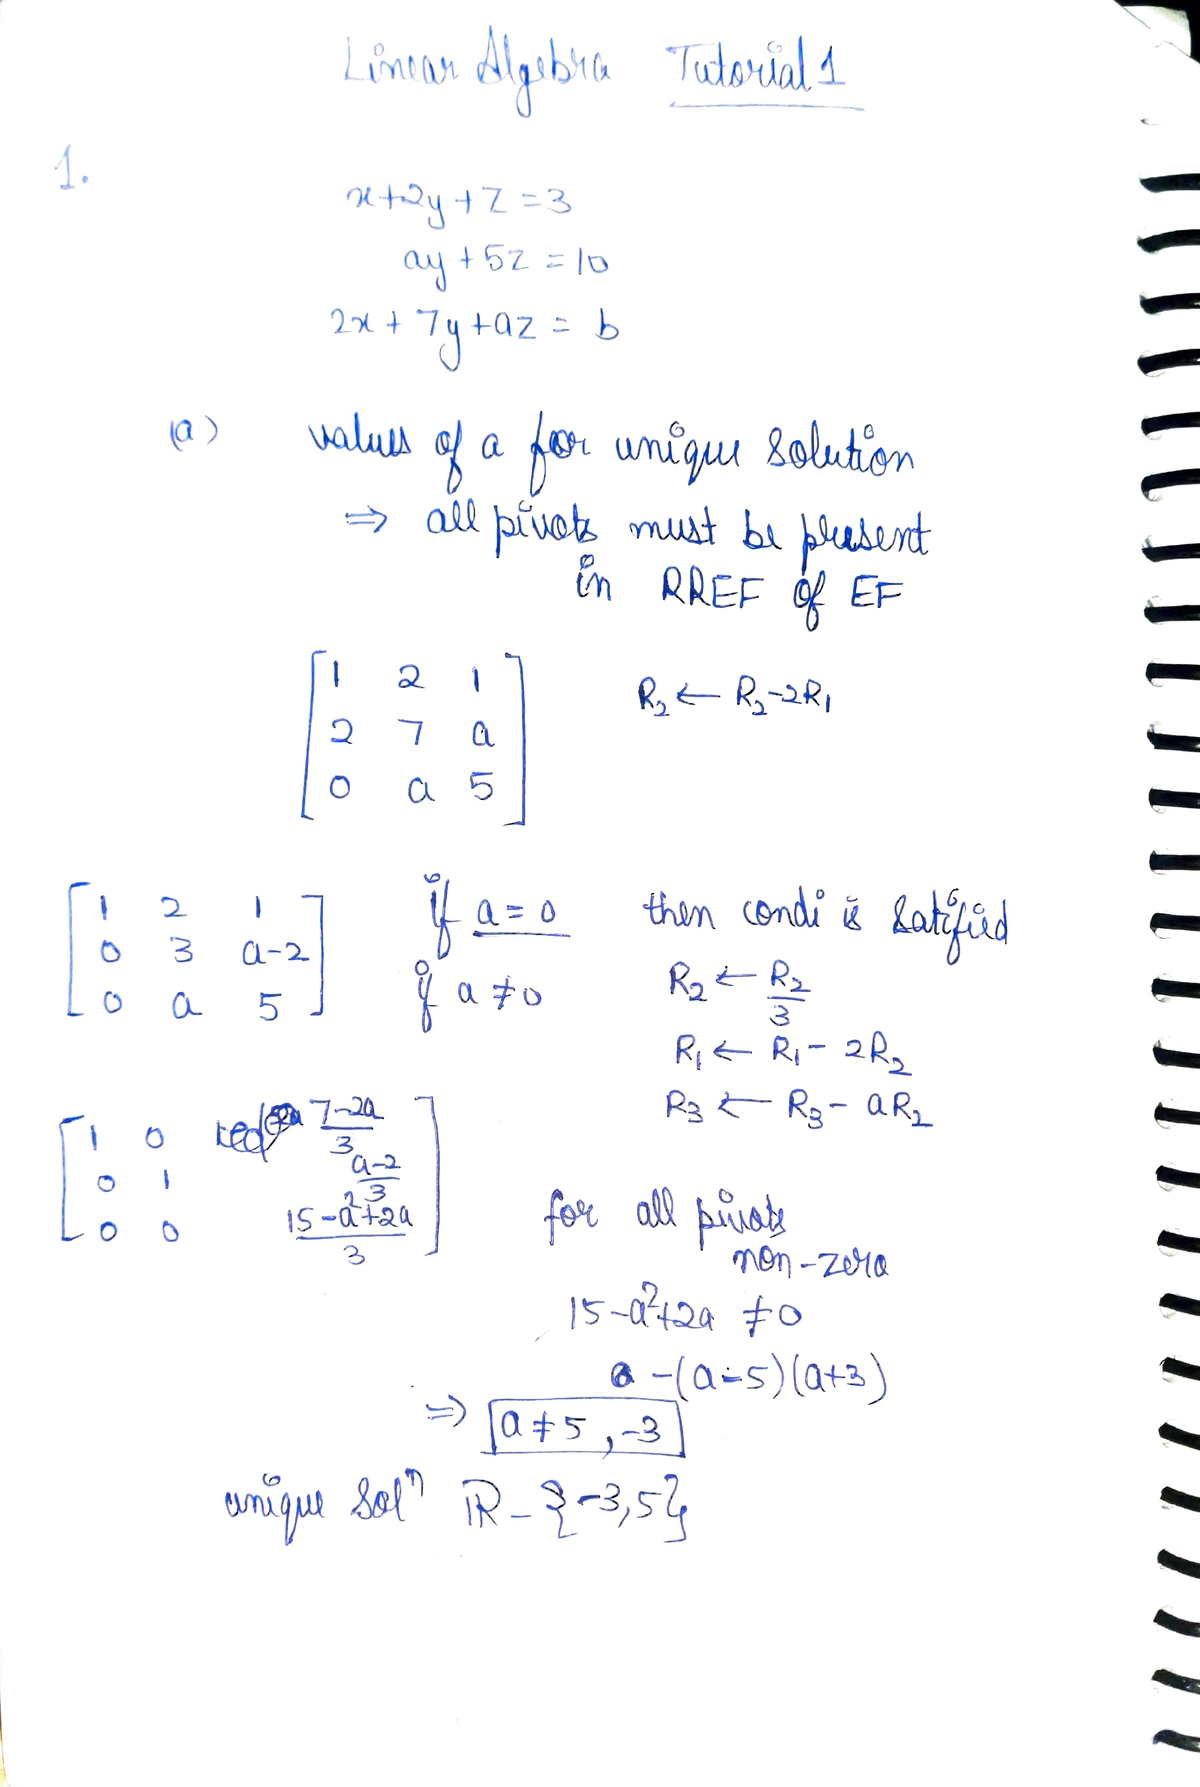 Linear Algebra Tutorial 1
1.
x+2y+z=3
ay+5z=10
2x+7y+az=b
(a) values of a for unique solution
⇒ all pivots must be present
in RREF of EF
[1 2 1
2 7 a
0 a 5] R₂ ← R₂-2R₁
[1 2 1
0 3 a-2
0 a 5]
if a=0 then condi is satified
if a≠0 R₂ ← R₂/3
R₁ ← R₁- 2R₂
R₃ ← R₃- aR₂
[1 0 (7-2a)/3
0 1 (a-2)/3
0 0 (15-a²+2a)/3]
for all pivots
non-zero
15-a²+2a ≠0
-(a-5)(a+3)
⇒ a≠5,-3
unique Solⁿ ℝ-{-3,5}